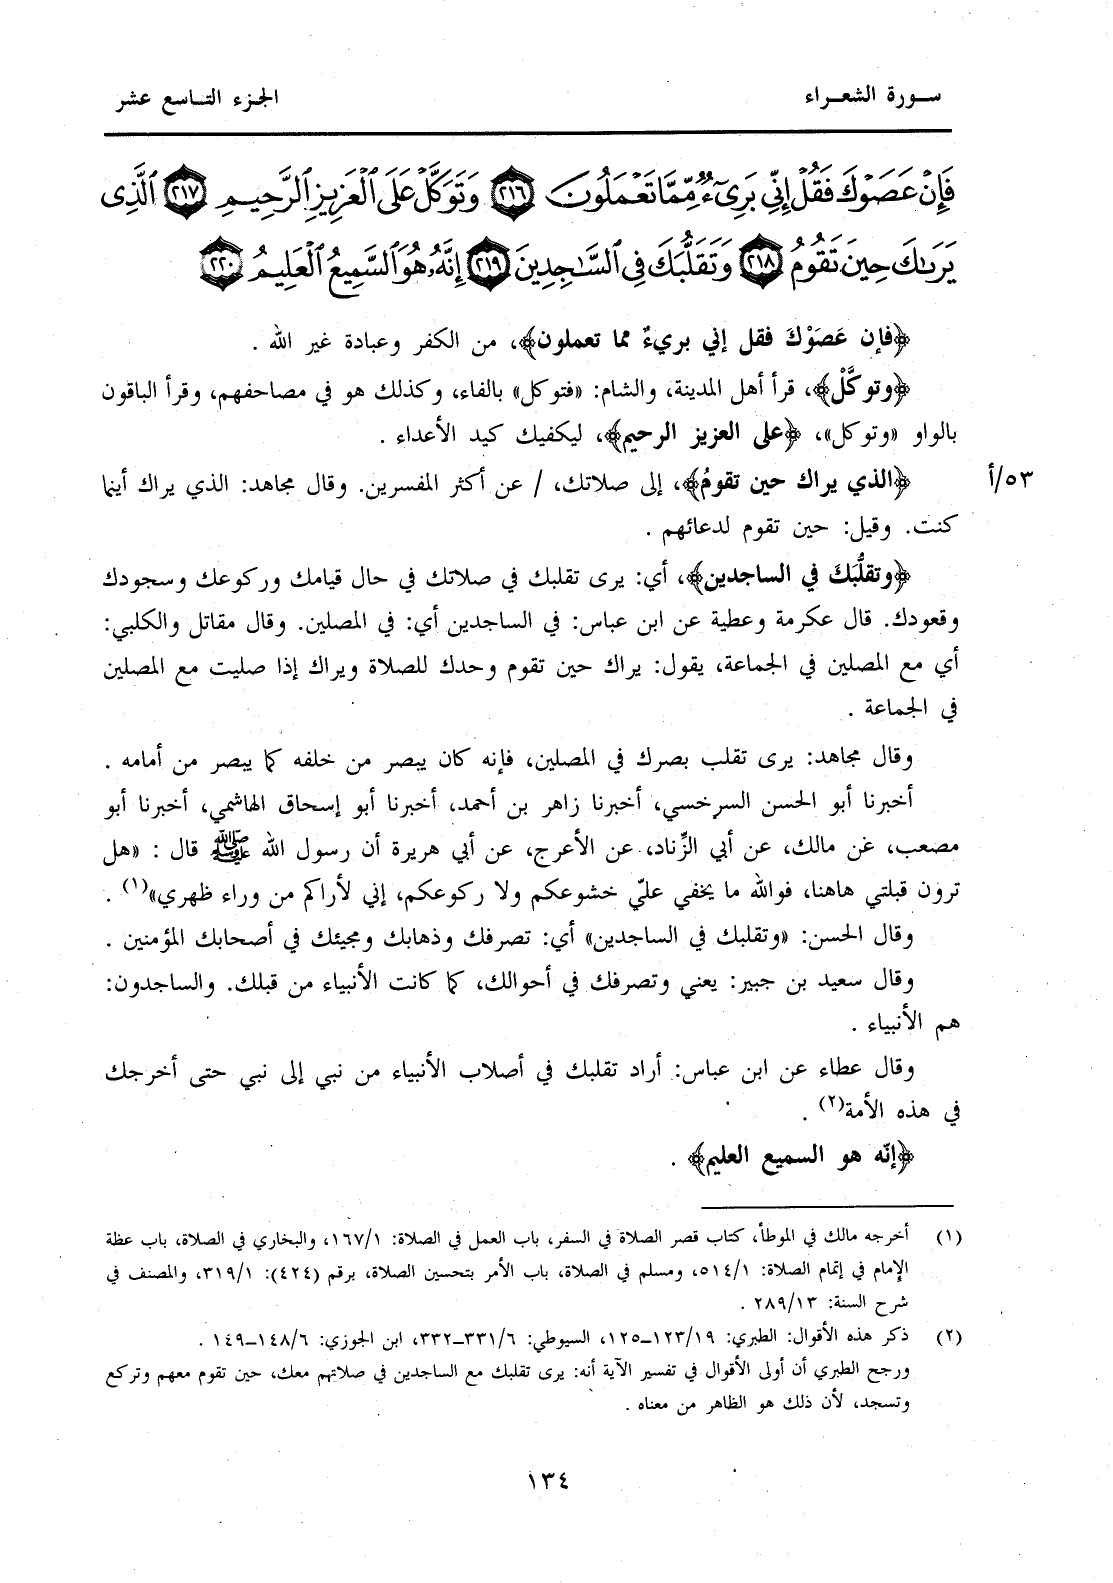 سورة الشعراء
الجزء التاسع عشر
فَإِنْ عَصَوْكَ فَقُلْ إِنِّي بَرِيٓءٌ مِّمَّا تَعْمَلُونَ ٢١٦ وَتَوَكَّلْ عَلَى ٱلْعَزِيزِ ٱلرَّحِيمِ ٢١٧ ٱلَّذِي
يَرَىٰكَ حِينَ تَقُومُ ٢١٨ وَتَقَلُّبَكَ فِي ٱلسَّٰجِدِينَ ٢١٩ إِنَّهُۥ هُوَ ٱلسَّمِيعُ ٱلْعَلِيمُ ٢٢٠
﴿فإن عَصَوْكَ فقل إني بريءٌ مما تعملون﴾، من الكفر وعبادة غير الله .
﴿وتوكَّلْ﴾، قرأ أهل المدينة، والشام: «فتوكل» بالفاء، وكذلك هو في مصاحفهم، وقرأ الباقون
بالواو «وتوكل»، ﴿على العزيز الرحيم﴾، ليكفيك كيد الأعداء .
﴿الذي يراك حين تقومُ﴾، إلى صلاتك، / عن أكثر المفسرين. وقال مجاهد: الذي يراك أينما
٥٣/أ
كنت. وقيل: حين تقوم لدعائهم .
﴿وتقلُّبَكَ في الساجدين﴾، أي: يرى تقلبك في صلاتك في حال قيامك وركوعك وسجودك
وقعودك. قال عكرمة وعطية عن ابن عباس: في الساجدين أي: في المصلين. وقال مقاتل والكلبي:
أي مع المصلين في الجماعة، يقول: يراك حين تقوم وحدك للصلاة ويراك إذا صليت مع المصلين
في الجماعة .
وقال مجاهد: يرى تقلب بصرك في المصلين، فإنه كان يبصر من خلفه كما يبصر من أمامه .
أخبرنا أبو الحسن السرخسي، أخبرنا زاهر بن أحمد، أخبرنا أبو إسحاق الهاشمي، أخبرنا أبو
مصعب، عن مالك، عن أبي الزِّناد، عن الأعرج، عن أبي هريرة أن رسول الله ﷺ قال : «هل
ترون قبلتي هاهنا، فوالله ما يخفي عليّ خشوعكم ولا ركوعكم، إني لأراكم من وراء ظهري»(١) .
وقال الحسن: «وتقلبك في الساجدين» أي: تصرفك وذهابك ومجيئك في أصحابك المؤمنين .
وقال سعيد بن جبير: يعني وتصرفك في أحوالك، كما كانت الأنبياء من قبلك. والساجدون:
هم الأنبياء .
وقال عطاء عن ابن عباس: أراد تقلبك في أصلاب الأنبياء من نبي إلى نبي حتى أخرجك
في هذه الأمة(٢) .
﴿إنّه هو السميع العليم﴾ .
(١) أخرجه مالك في الموطأ، كتاب قصر الصلاة في السفر، باب العمل في الصلاة: ١٦٧/١، والبخاري في الصلاة، باب عظة
الإمام في إتمام الصلاة: ٥١٤/١، ومسلم في الصلاة، باب الأمر بتحسين الصلاة، برقم (٤٢٤): ٣١٩/١، والمصنف في
شرح السنة: ٢٨٩/١٣ .
(٢) ذكر هذه الأقوال: الطبري: ١٢٣/١٩_١٢٥، السيوطي: ٣٣١/٦_٣٣٢، ابن الجوزي: ١٤٨/٦_١٤٩ .
ورجح الطبري أن أولى الأقوال في تفسير الآية أنه: يرى تقلبك مع الساجدين في صلاتهم معك، حين تقوم معهم وتركع
وتسجد، لأن ذلك هو الظاهر من معناه .
١٣٤